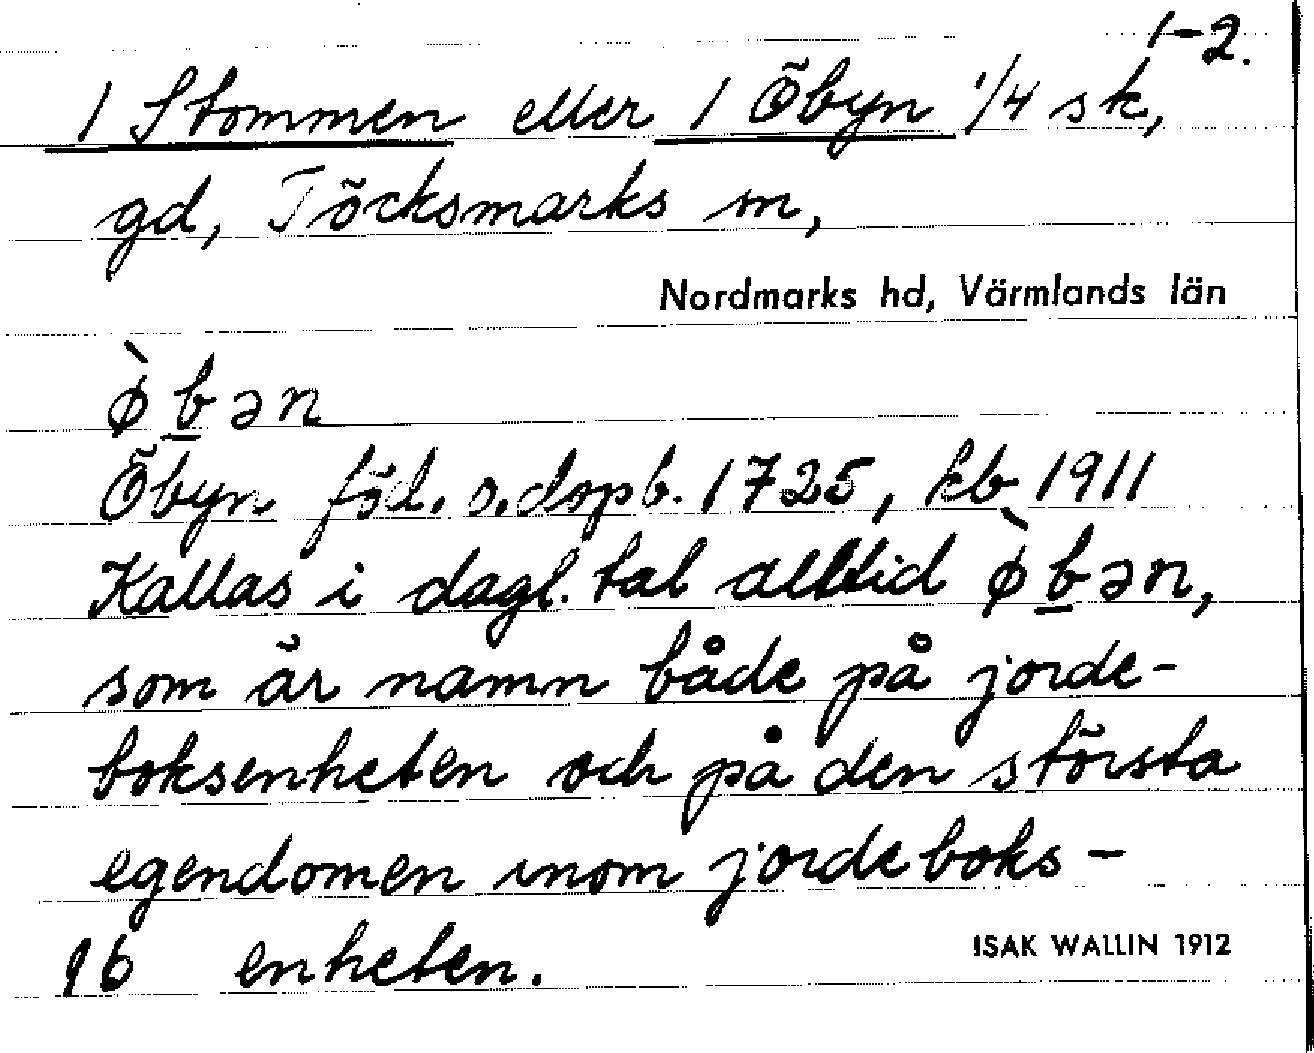 1-2.
1 Stommen eller 1 Öbyn 1/4 sk,
gd, Töcksmarks sn,
Nordmarks hd, Värmlands län
ø̀b̲ən
Öbyn föd. o. dopb. 1725, kb 1911
Kallas i dagl. tal alltid ø̀b̲ən,
som är namn både på jorde-
boksenheten och på den största
egendomen inom jordeboks-
96 enheten.
ISAK WALLIN 1912